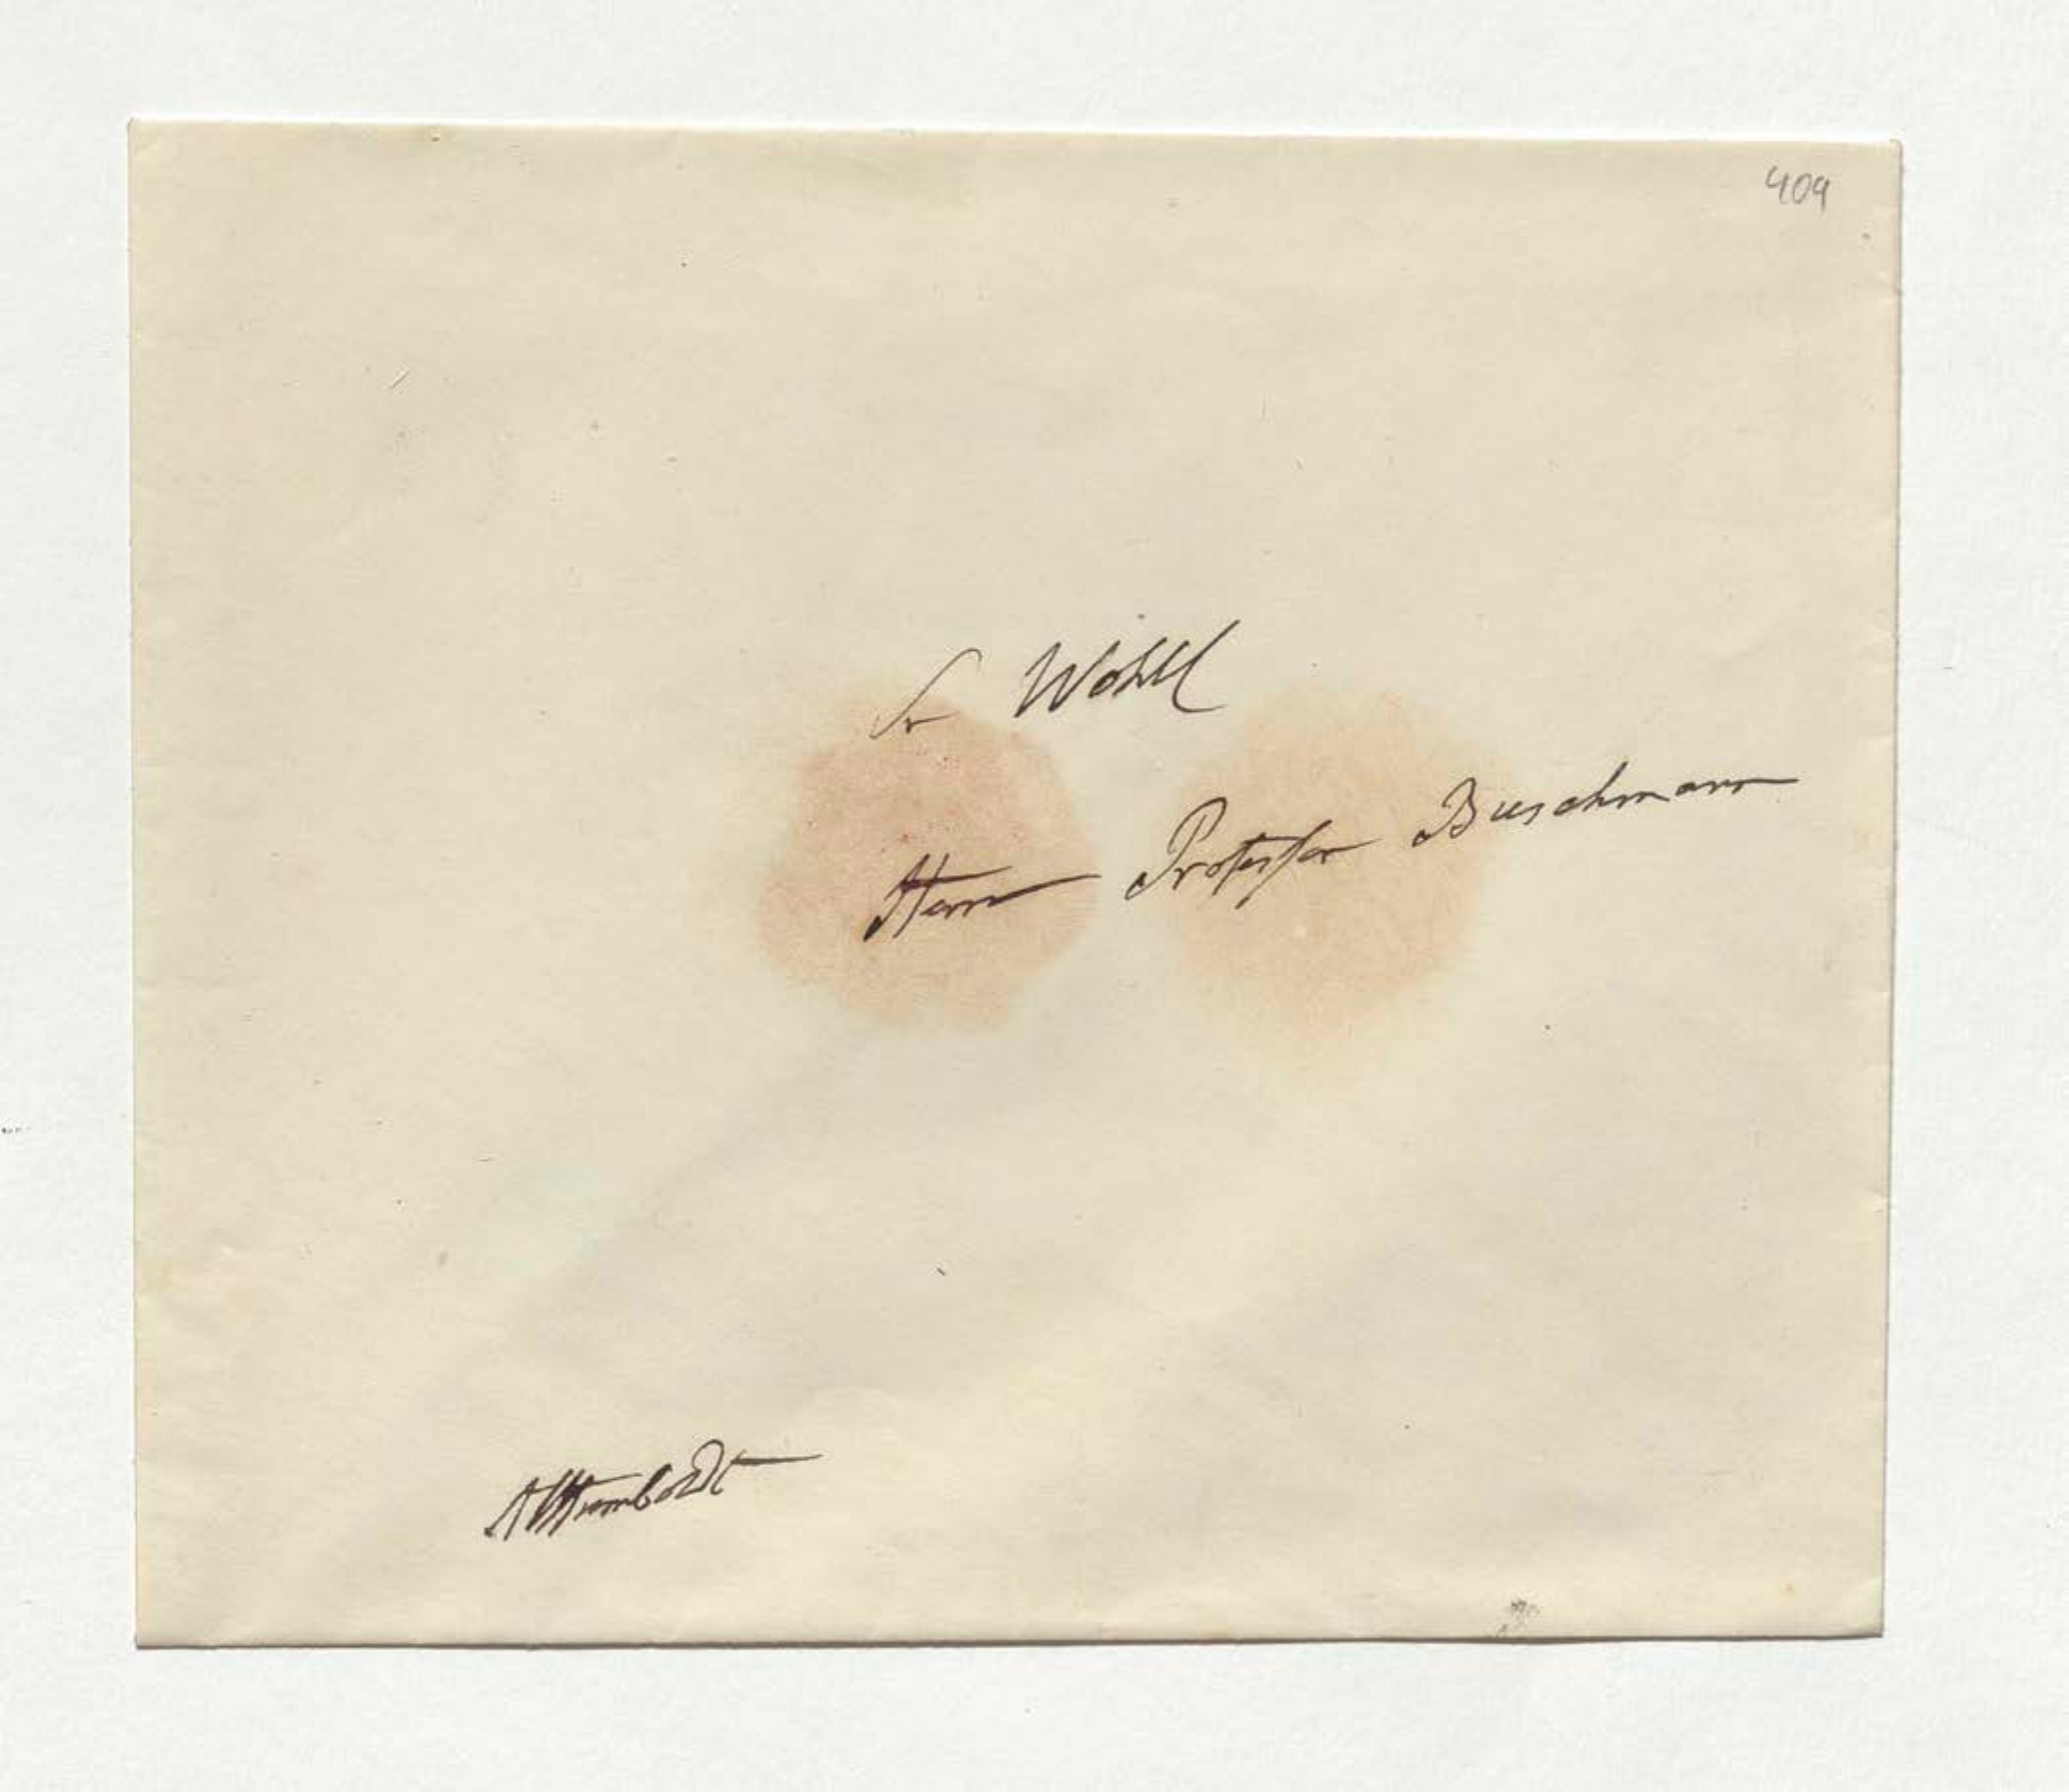 409
Sr Wohll
Herrn Professor Buschmann
AVHumboldt